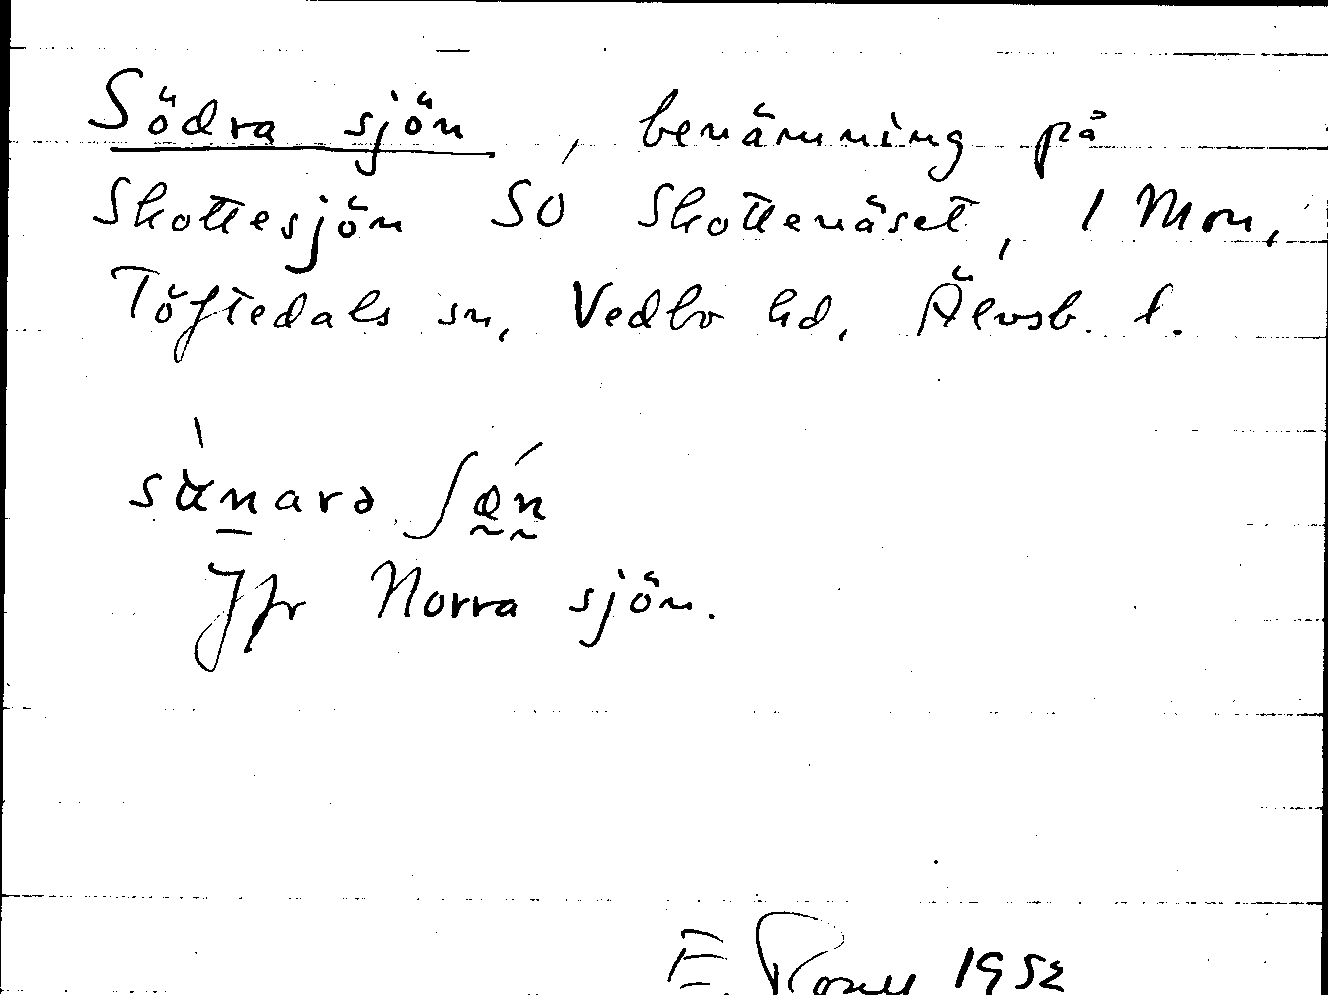 Södra sjön, benämning på
Skottesjön SO Skottenäset, 1 Mon,
Töftedals sn, Vedbo hd, Älvsb. l.
Jfr Norra sjön.
E. 1952